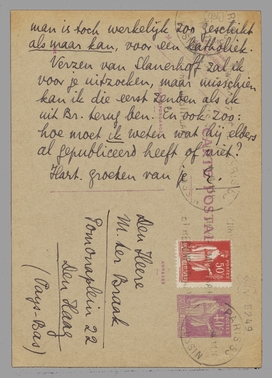 man is toch werkelijk zoo geschikt
als maar kan, voor een katholiek.
Verzen van Slauerhoff zal ik
voor je uitzoeken, maar misschien
kan ik die eerst zenden als ik
uit Br. terug ben. En ook zoo:
hoe moet ik weten wat hij elders
al gepubliceerd heeft of niet?
Hart. groeten van je
CARTE POSTALE
Den Heere
M. ter Braak
Pomonaplein 22
Den Haag
(Pays-Bas)
50c